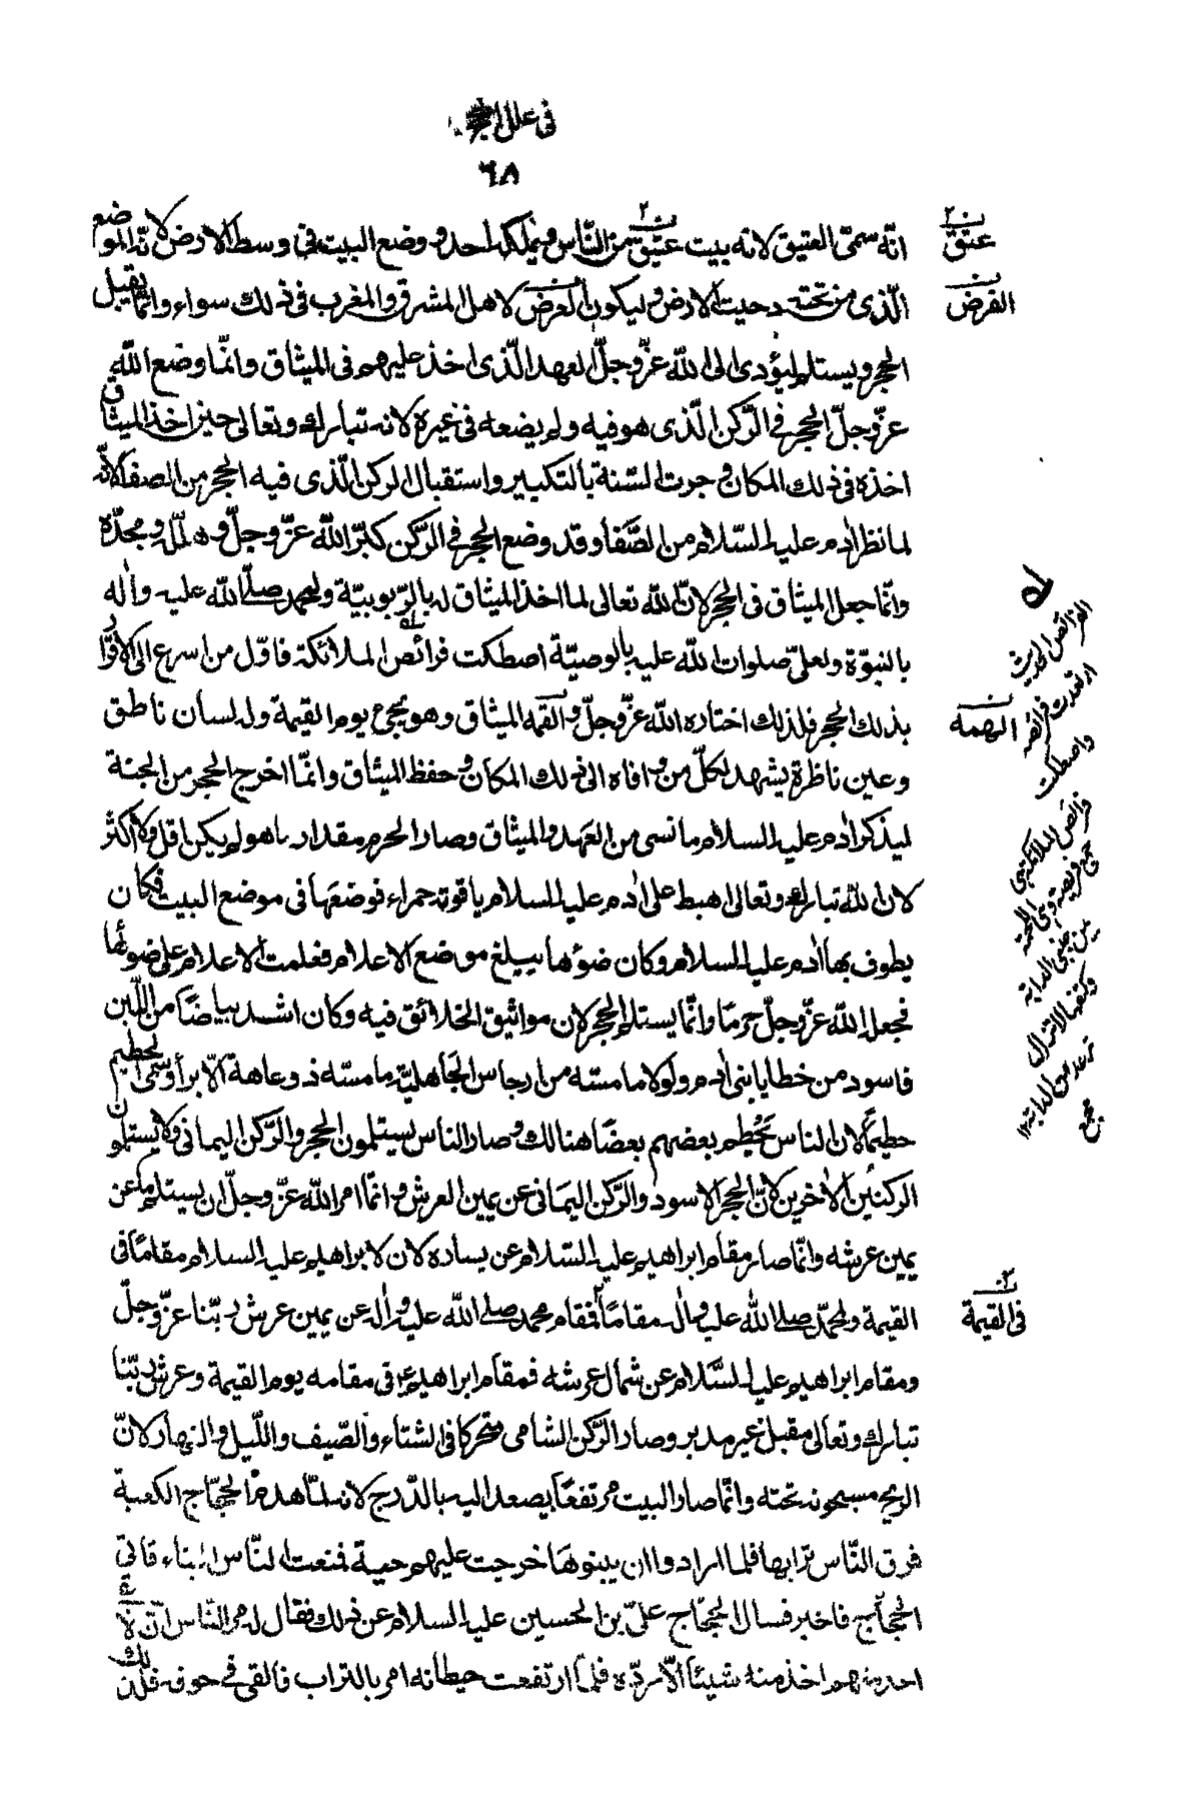 فى علل الحج
٦٨
انّه سمّى العتيق لانه بيت عتيق من النّاس ولم يملكه احد ووضع البيت فى وسط الارض لانّه الموضع
الّذى من تحته دحيت الارض وليكون الغرض لاهل المشرق والمغرب فى ذلك سواء وانّما يقبل
الحجر ويستلم ليؤدى الى اللّه عزّ وجلّ العهد الّذى اخذ عليهم فى الميثاق وانّما وضع اللّه
عزّ وجلّ الحجر فى الرّكن الّذى هو فيه ولم يضعه فى غيره لانه تبارك وتعالى حين اخذ الميثاق
اخذه فى ذلك المكان وجرت السّنة بالتكبير واستقبال الركن الّذى فيه الحجر من الصفا لانّه
لما نظر ادم عليه السّلام من الصّفا وقد وضع الحجر فى الرّكن كبّر اللّه عزّ وجلّ وهلّله ومجّده
وانّما جعل الميثاق فى الحجر لانّ اللّه تعالى لما اخذ الميثاق له بالرّبوبيّة ولمحمد صلّى اللّه عليه واله
بالنبوّة ولعلىّ صلوات اللّه عليه بالوصيّة اصطكت فرائص الملائكة فاوّل من اسرع الى الاقرار
بذلك الحجر فلذلك اختاره اللّه عزّ وجلّ والقمه الميثاق وهو يجئ يوم القيمة وله لسان ناطق
وعين ناظرة يشهد لكلّ من وافاه الى ذلك المكان وحفظ الميثاق وانّما اخرج الحجر من الجنة
ليذكر ادم عليه السلام ما نسى من العهد والميثاق وصار الحرم مقدار ما هو لم يكن اقل ولا اكثر
لان اللّه تبارك وتعالى اهبط على ادم عليه السلام ياقوتة حمراء فوضعها فى موضع البيت فكان
يطوف بها ادم عليه السلام وكان ضوئها يبلغ موضع الاعلام فعلمت الاعلام على ضوئها
فجعله اللّه عزّ وجلّ حرمًا وانّما يستلم الحجر لان مواثيق الخلائق فيه وكان اشد بياضًا من اللّبن
فاسود من خطايا بنى ادم ولولا ما مسّه من ارجاس الجاهليّة ما مسّه ذو عاهة الّا برأ وسمى الحطيم
حطيمًا لان الناس يحطم بعضهم بعضًا هنالك وصار الناس يستلمون الحجر والرّكن اليمانى ولا يستلمون
الركنين الاخرين لانّ الحجر الاسود والرّكن اليمانى عن يمين العرش وانّما امر اللّه عزّ وجلّ ان يستلم ما عن
يمين عرشه وانّما صار مقام ابراهيم عليه السّلام عن يساره لان لابراهيم عليه السلام مقامًا فى
القيمة ولمحمّد صلى اللّه عليه واله مقامًا فمقام محمد صلى اللّه عليه واله عن يمين عرش ربّنا عزّ وجلّ
ومقام ابراهيم عليه السّلام عن شمال عرشه فمقام ابراهيم فى مقامه يوم القيمة وعرش ربّنا
تبارك وتعالى مقبل غير مدبر وصار الرّكن الشامى متحركا فى الشتاء والصّيف واللّيل والنهار لانّ
الريح مسجونة تحته وانّما صار البيت مرتفعًا يصعد اليه بالدّرج لانه لمّا هدم الحجّاج الكعبة
فرق النّاس ترابها فلما ارادوا ان يبنوها خرجت عليهم حية فمنعت النّاس البناء فاتى
الحجّاج فاخبر فسال الحجّاج علىّ بن الحسين عليه السلام عن ذلك فقال له مر النّاس ان لا
احد منهم اخذ منه شيئًا الّا ردّه فلمّا ارتفعت حيطانه امر بالتراب فالقى فى جوفه فلذلك
عتق
الغرض
الهمه
فى القيمة
واصطكت
فرائص الملائكة